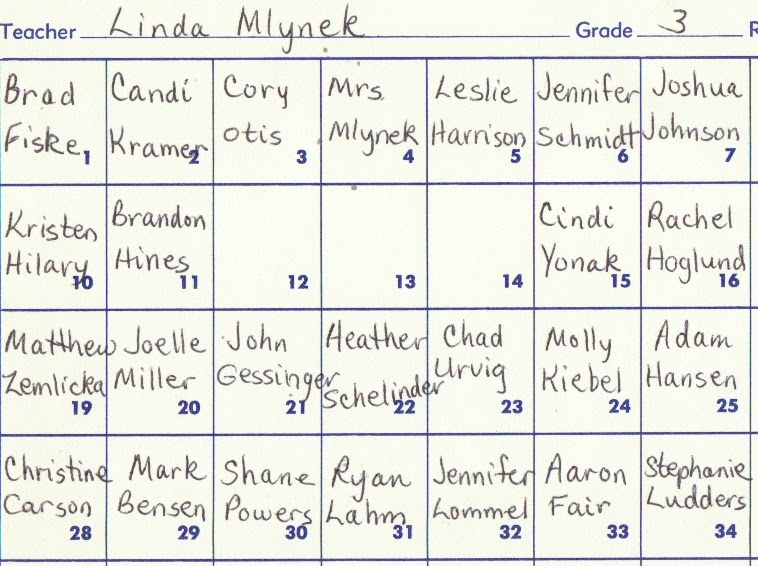 Teacher Linda Mlynek Grade 3 R
Brad Candi Cory Mrs. Leslie Jennifer Joshua
Fiske Kramer Otis Mlynek Harrison Schmidt Johnson
1 2 3 4 5 6 7
Kristen Brandon Cindi Rachel
Hilary Hines Yonak Hoglund
10 11 12 13 14 15 16
Matthew Joelle John Heather Chad Molly Adam
Zemlicka Miller Gessinger Schelinder Urvig Kiebel Hansen
19 20 21 22 23 24 25
Christine Mark Shane Ryan Jennifer Aaron Stephanie
Carson Bensen Powers Lahm Lommel Fair Ludders
28 29 30 31 32 33 34